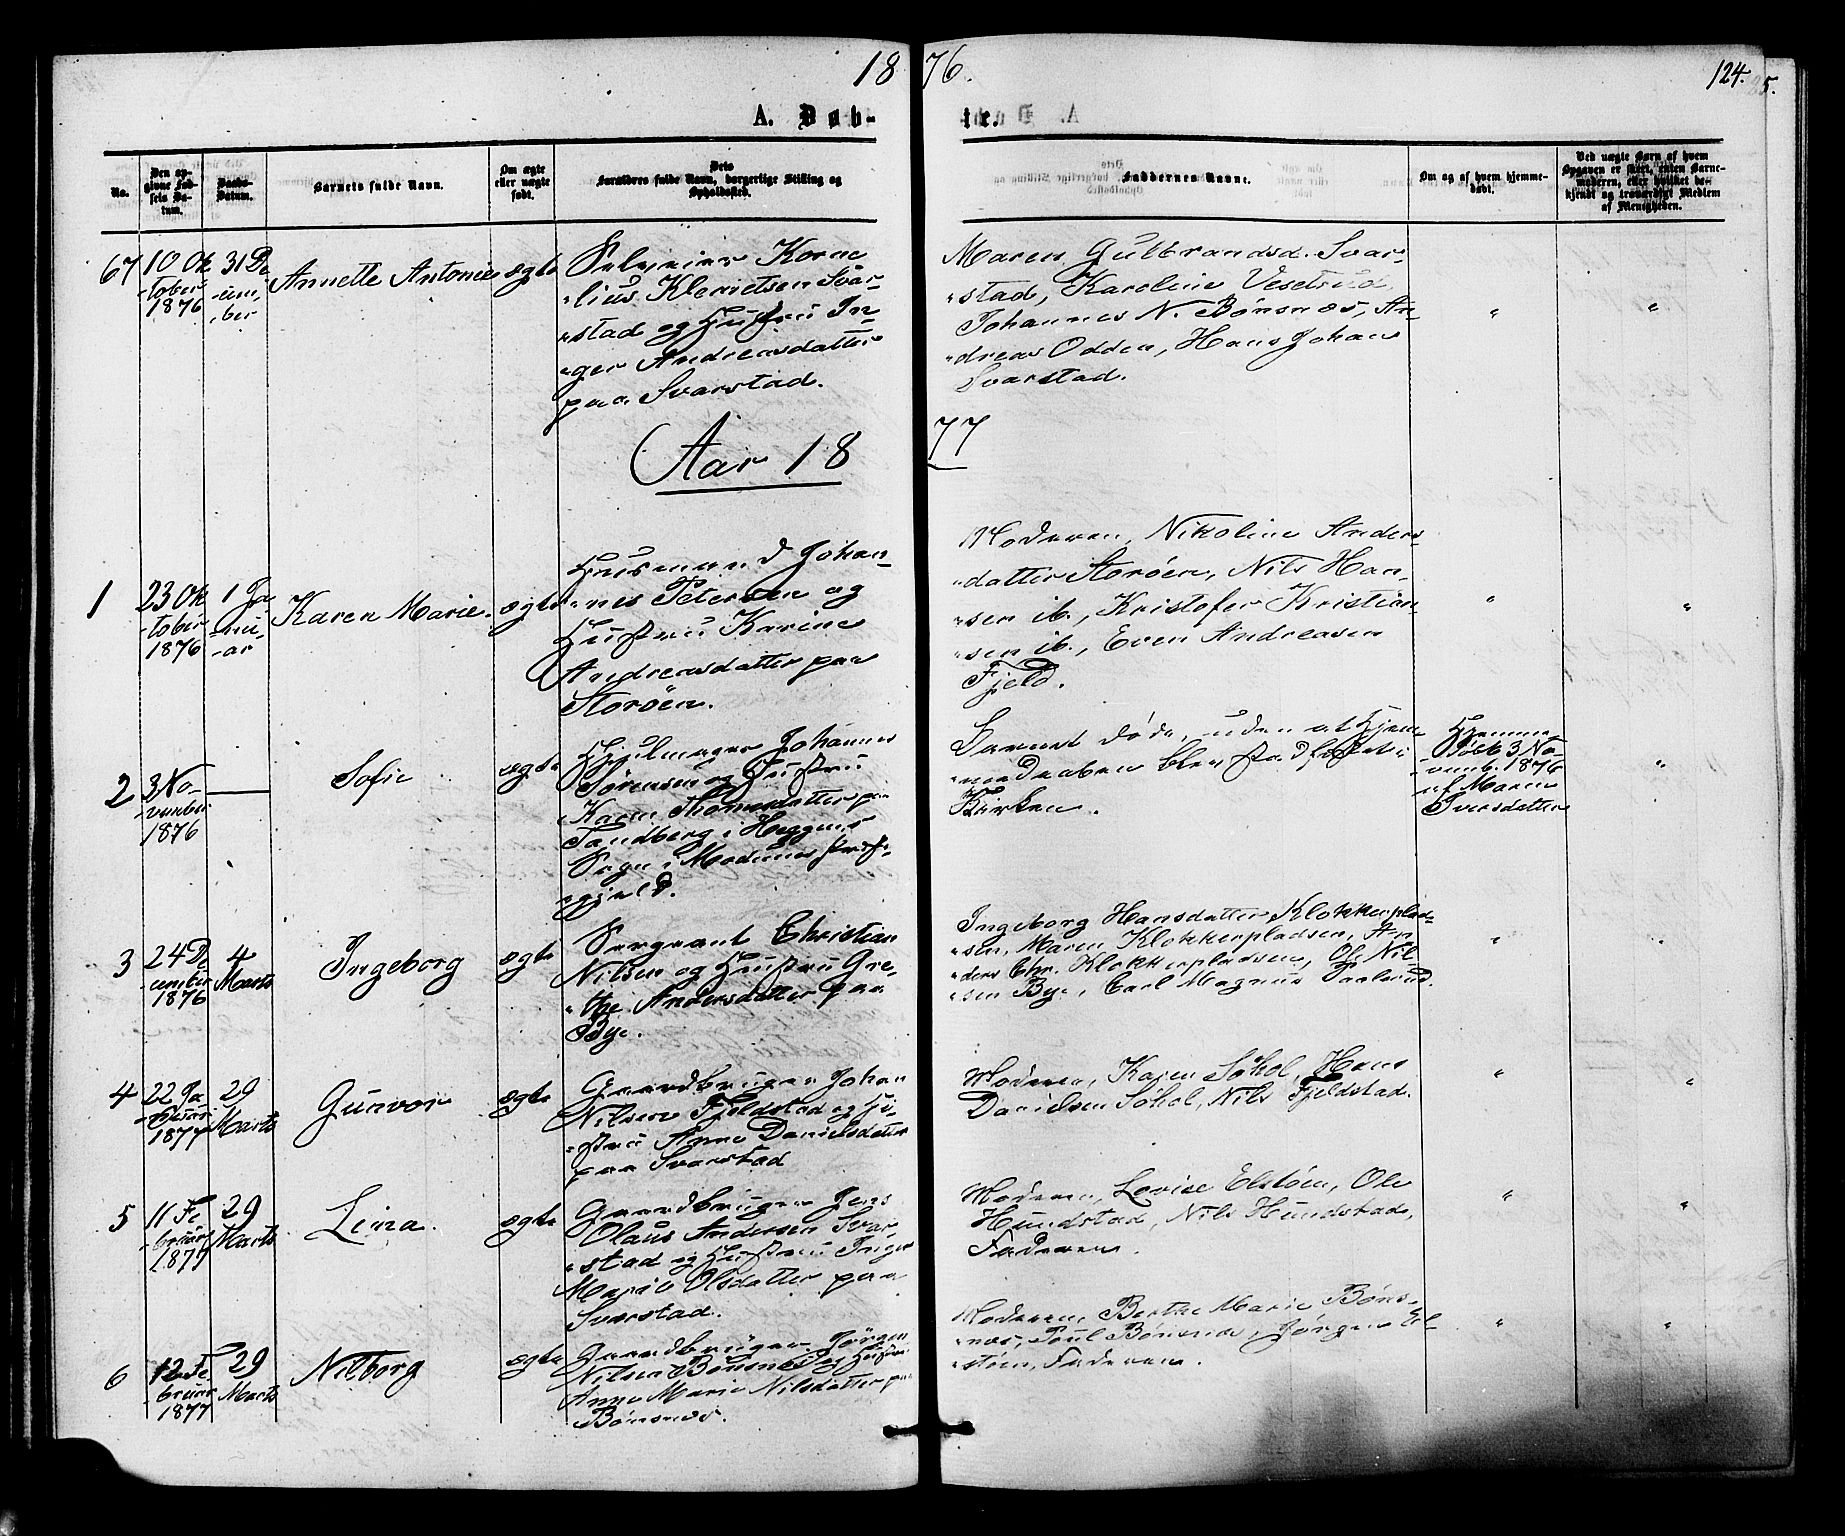 1876.
124.
A. Døb-
te.
No.
Den op-
givne Fød-
sels Da-
tum.
Daabs-
Datum.
Barnets fulde Navn.
Om ægte
eller uægte
født.
Dets
Forældres fulde Navn, borgerlige Stilling og
Opholdssted.
Faddernes Navne.
Om og af hvem hjemme-
døbt.
Ved uægte Børn af hvem
Opgaven er skeet, enten Barne-
moderen, eller hvilket be-
kjendt og troværdigt Medlem
af Menigheden.
67
10 Ok
-tober
1876
31 De
-cem,
-ber
Annette Antonie
ægte
Korne
"lius Klemetsen Svar-
"stad og Hustru In-
"ger Andreasdatter
paa Svarstad.
Maren Gulbrandsd. Svar-
"stad, Karoline Vesetrud,
Johannes N. Bønsnæs, An-
"dreas Odden, Hans Johan
Svarstad.
"
"
Aar 1877
1
23 Ok
-tober
1876
1 Ja
-nu,
-ar
Karen Marie.
ægte
Husmand Johan-
"nes Petersen og
Hustru Karine
Andreasdatter paa
Storøen.
Moderen, Nikoline Anders-
"datter Storøen, Nils Han-
"sen ib., Kristofer Kristian-
"sen ib., Even Andreasen
Fjeld.
"
"
2
3 No-
-vember
1876
Sofie
ægte
Hjulmager Johannes
Sørensen og Hustru
Karen Thomasdatter paa
Sandberg i Heggens
Sogn i Modums Præste-
"gjeld.
Barnet døde, uden at Hjem-
"medaaben blev stadfæstet i
Kirken.
Hjemme
døbt 3 No-
-vemb. 1876
af Maren
Iversdatter
"
3
24 De
-cember
1876
4
Marts
Ingeborg
ægte
Sergeant Christian
Nilsen og Hustru Gre-
"the Andersdatter paa
Bye.
Ingeborg Hansdatter Klokkerplad-
"sen, Maren Klokkerpladsen, An-
"ders Chr. Klokkerpladsen, Ole Nil-
"sen Bye, Carl Magnus Paalsrud.
"
"
4
22 Ja-
-nuari
1877
29
Marts
Gunvor
ægte
Gaardbruger Johan
Nilsen Fjeldstad og Hu-
"stru Anne Danielsdatter
paa Svarstad
Moderen, Karen Søhol, Hans
Danielsen Søhol, Nils Fjeldstad.
"
"
5
11 Fe
-bruar
1877
29
Marts
Lina.
ægte
Gaardbruger Jens
Olaus Andersen Svar-
"stad og Hustru Inger
Marie Olsdatter paa
Svarstad.
Moderen, Lovise Elstøen, Ole
Hundstad, Nils Hundstad,
Faderen.
"
"
6
12 Fe
bruar
1877
29
Marts
Nilborg
ægte
Gaardbruger Jørgen
Nilsen Bønsnæs og Hustru
Anne Marie Nilsdatter paa
Bønsnæs.
Moderen, Berthe Marie Bøns-
"næs, Poul Bønsnæs, Jørgen El-
"støen, Faderen.
"
"